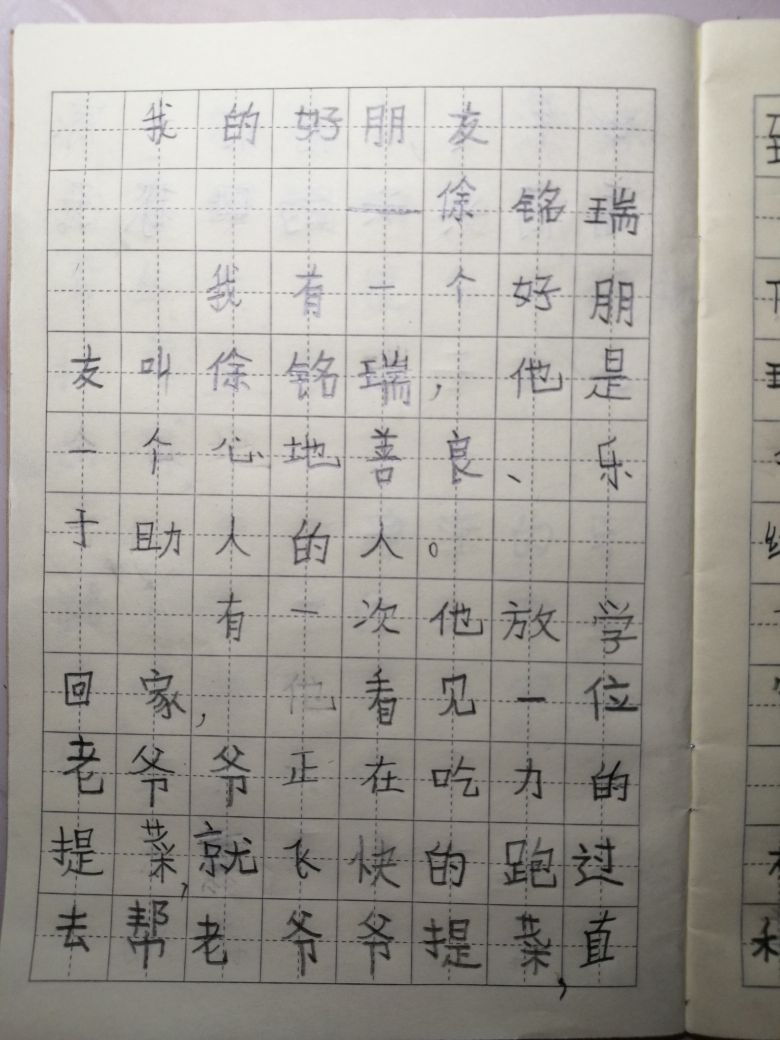 我的好朋友
——徐铭瑞
我有一个好朋
友叫徐铭瑞，他是
一个心地善良、乐
于助人的人。
有一次他放学
回家，他看见一位
老爷爷正在吃力的
提菜，就飞快的跑过
去帮老爷爷提菜，直